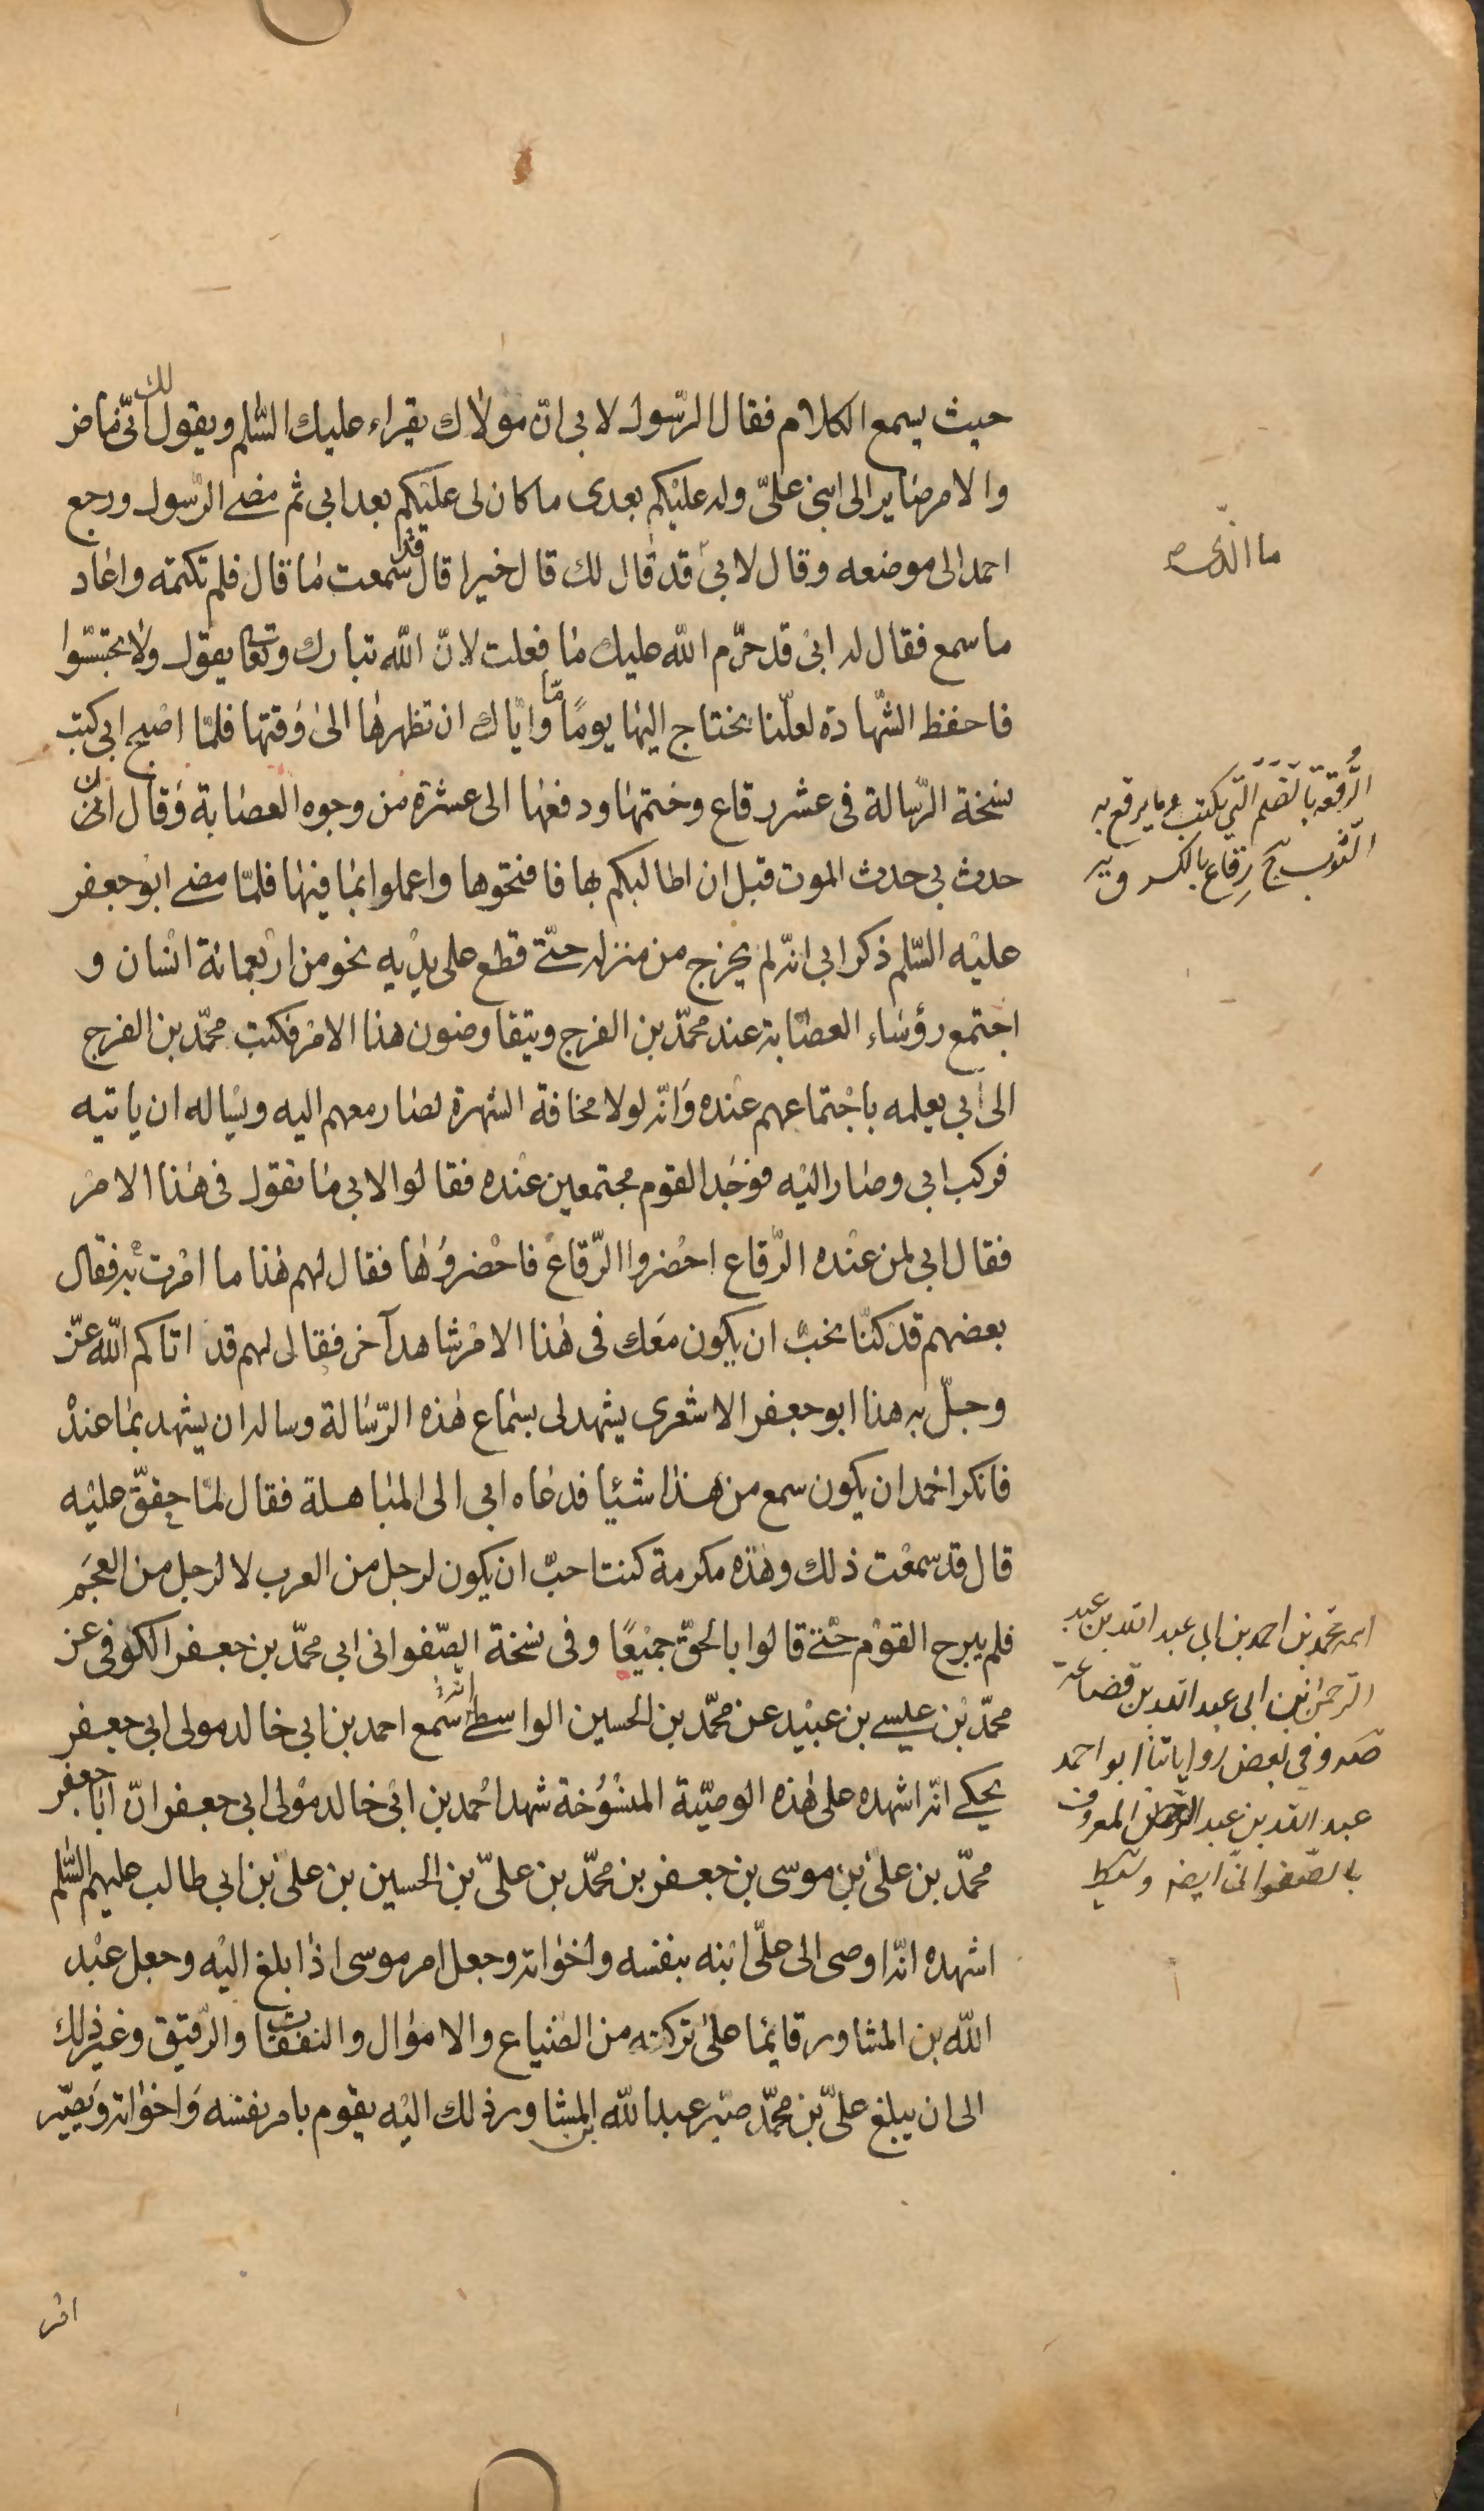 حيث يسمع الكلام فقال الرّسول لابى انّ مولاك يقراء عليك السّلم ويقول لك انّى ماض
والامر صاير الى ابنى علىّ وله عليكم بعدى ما كان لى عليكم بعد ابى ثم مضى الرّسول ورجع
احمد الى موضعه وقال لابى قد قال لك قال خيرا قال قد سمعت ما قال فلم تكتمه واعاد
ما سمع فقال له ابى قد حرّم الله عليك ما فعلت لانّ الله تبارك وتعا يقول ولا تجسّسوا
فاحفظ الشّهادة لعلّنا نحتاج اليها يومًا مّا وايّاك ان تظهرها الى وقتها فلمّا اصبح ابى كتب
نسخة الرّسالة فى عشر رقاع وختمها ودفعها الى عشرة من وجوه العصابة وقال ان
حدث بى حدث الموت قبل ان اطالبكم بها فافتحوها واعملوا بما فيها فلمّا مضى ابو جعفر
عليه السّلم ذكر ابى انّه لم يخرج من منزله حتّى قطع على يديه نحو من اربعمائة انسان و
اجتمع رؤساء العصابة عند محمّد بن الفرج ويتفاوضون هذا الامر فكتب محمّد بن الفرج
الى ابى يعلمه باجتماعهم عنده وانّه لولا مخافة الشهرة لصار معهم اليه ويساله ان ياتيه
فركب ابى وصار اليه فوجد القوم مجتمعين عنده فقالوا لابى ما تقول فى هذا الامر
فقال ابى لمن عنده الرّقاع احضروا الرّقاع فاحضروها فقال لهم هذا ما امرت به فقال
بعضهم قد كنّا نحبّ ان يكون معك فى هذا الامر شاهد آخر فقال لهم قد اتاكم الله عزّ
وجلّ به هذا ابو جعفر الاشعرى يشهد لى بسماع هذه الرّسالة وساله ان يشهد بما عنده
فانكر احمد ان يكون سمع من هذا شيئا فدعاه ابى الى المباهلة فقال لمّا حقّق عليه
قال قد سمعت ذلك وهذه مكرمة كنت احبّ ان يكون لرجل من العرب لا لرجل من العجم
فلم يبرح القوم حتّى قالوا بالحقّ جميعًا وفى نسخة الصّفوانى ابى محمّد بن جعفر الكوفى عن
محمّد بن عيسى بن عبيد عن محمّد بن الحسين الواسطى انّه سمع احمد بن ابى خالد مولى ابى جعفر
يحكى انّه اشهده على هذه الوصيّة المنسوخة شهد احمد بن ابى خالد مولى ابى جعفر انّ ابا جعفر
محمّد بن علىّ بن موسى بن جعفر بن محمّد بن علىّ بن الحسين بن علىّ بن ابى طالب عليهم السّلم
اشهده انّه اوصى الى علىّ ابنه بنفسه واخواته وجعل امر موسى اذا بلغ اليه وجعل عبد
الله بن المشاور قايما على تركته من الضياع والاموال والنفقات والرّقيق وغير ذلك
الى ان يبلغ علىّ بن محمّد صيّر عبد الله بن المشاور ذلك اليه يقوم بامر نفسه واخواته ويصيّر
ما الّذى
الرُّقعة بالضم التى تكتب وما يرقع به
الثوب ج رِقاع بالكسر
محمد بن احمد بن ابى عبد الله بن عبد
الرحمن بن ابى عبد الله بن قضاعة
وفى بعض رواياتنا ابو احمد
عبد الله بن عبد الرحمن المعروف
بالصّفوانى ايضا
امر